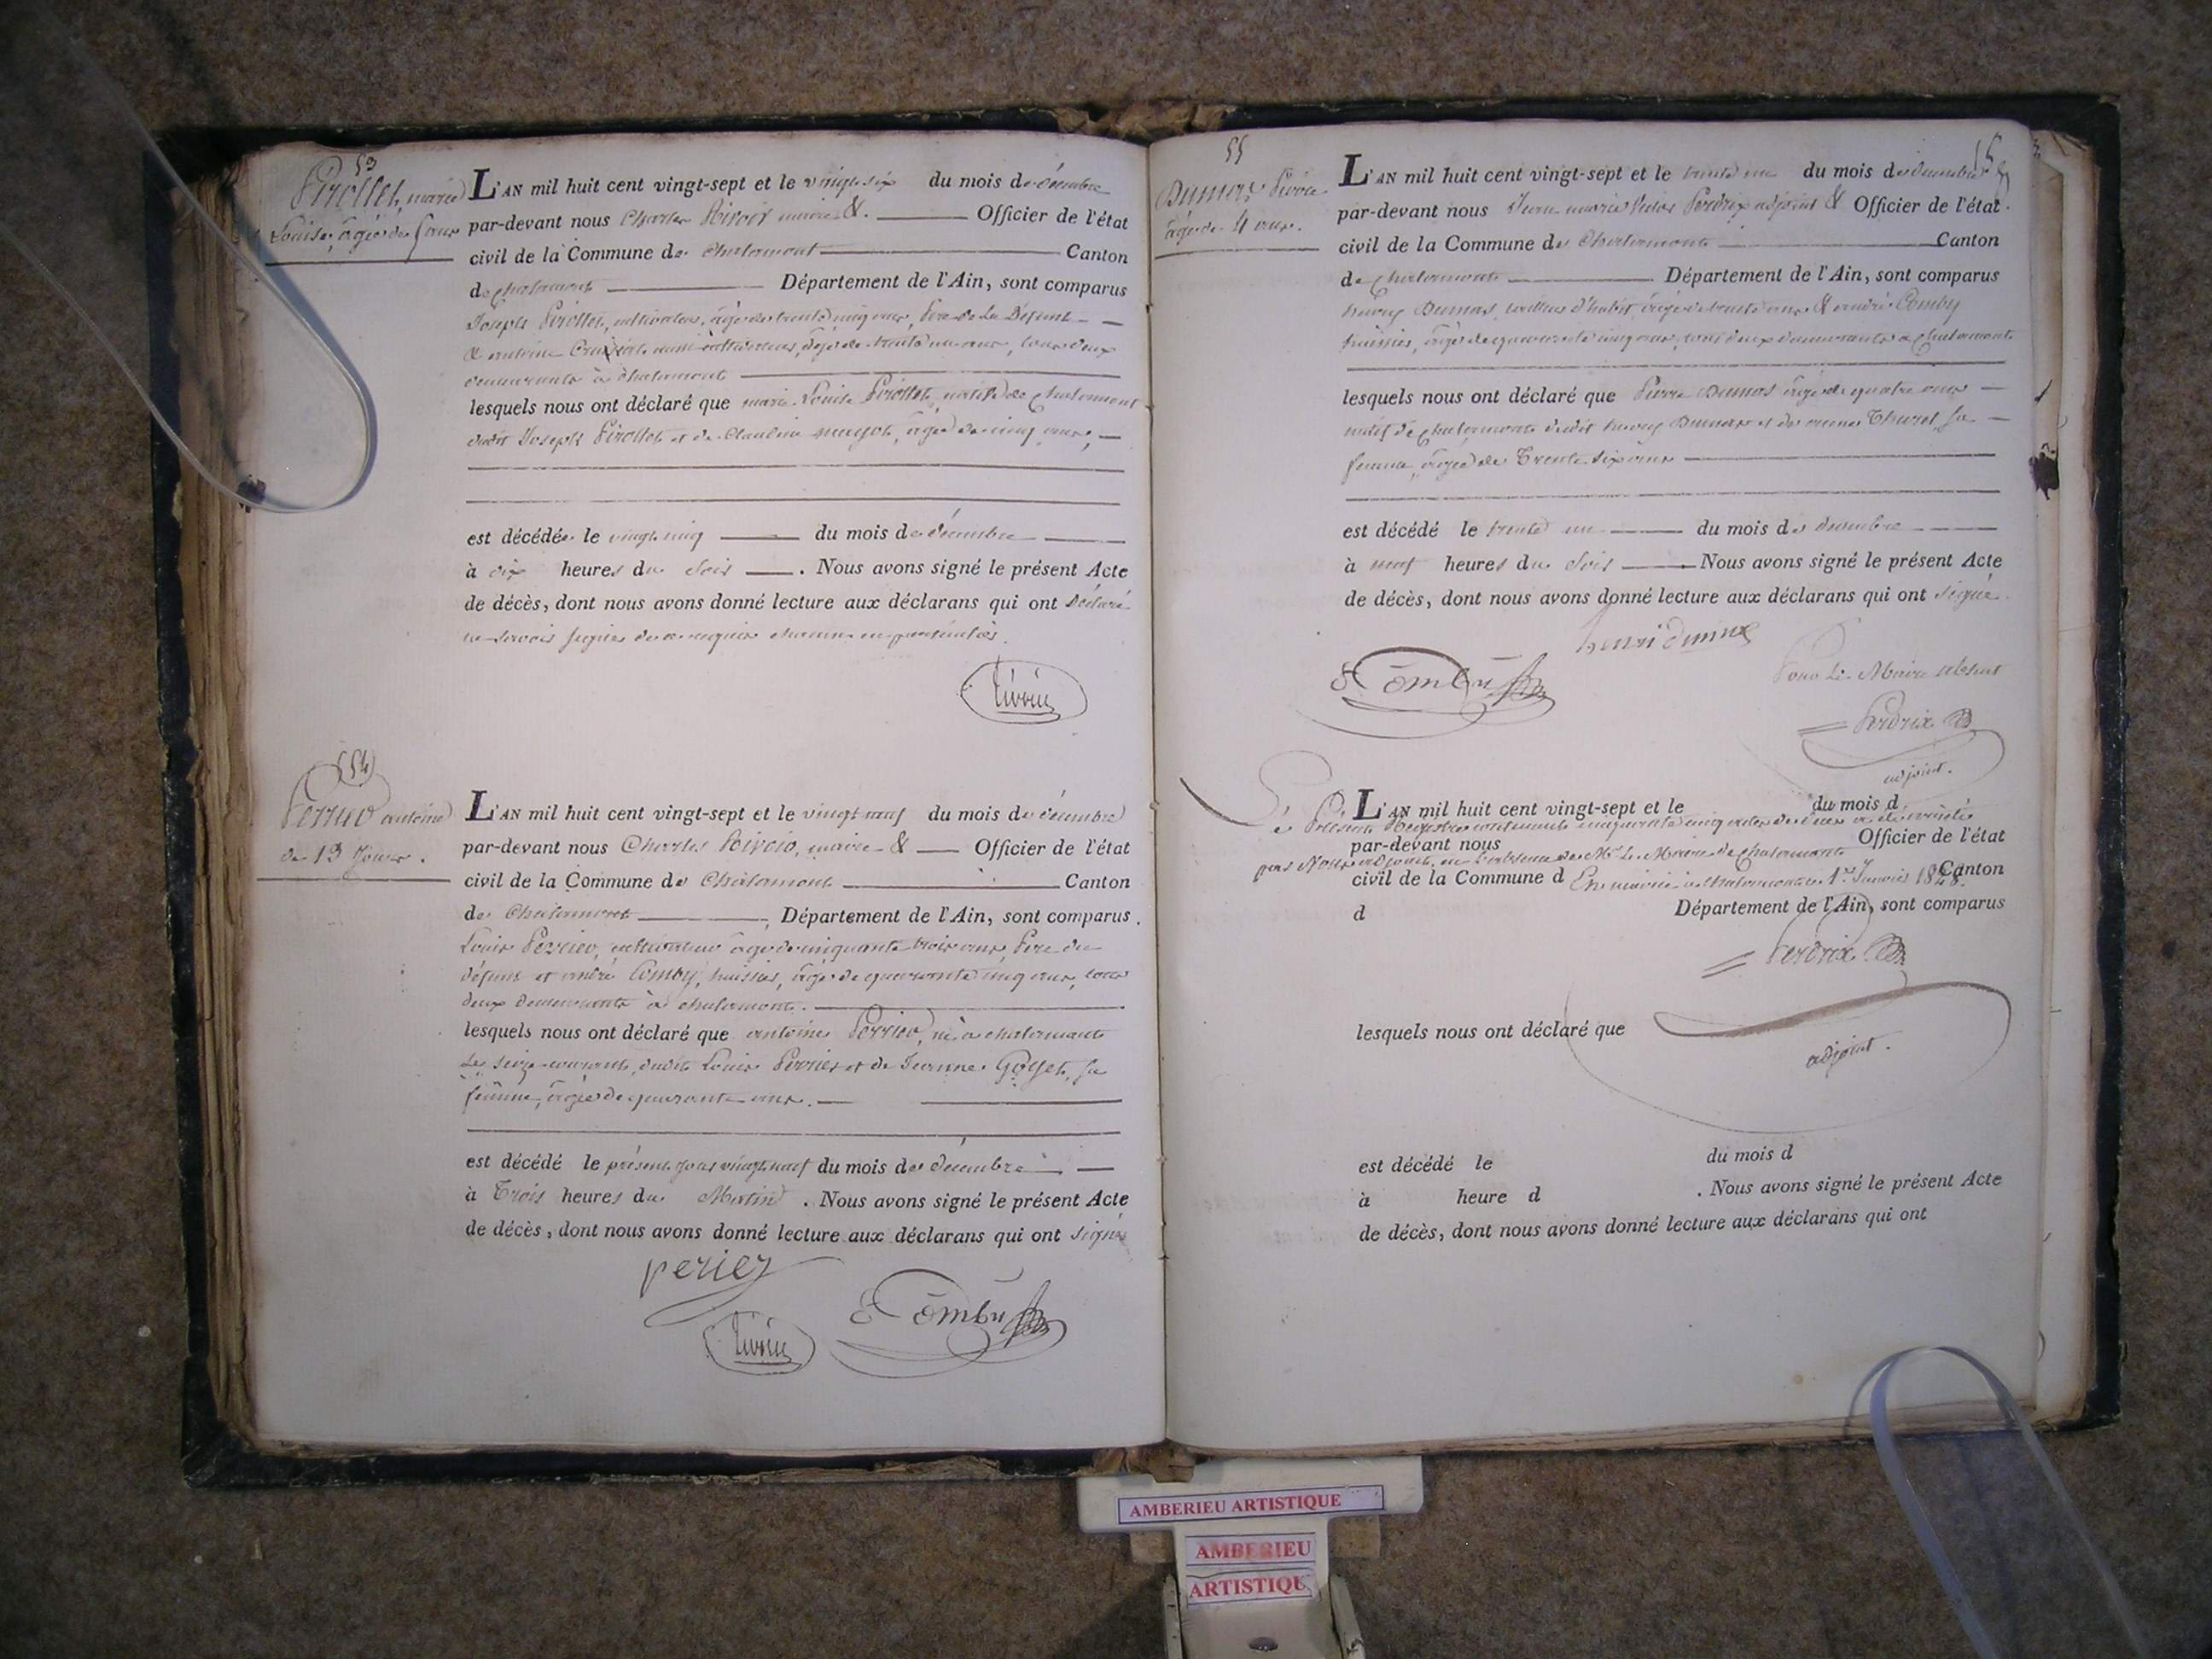 53
Pirollet, marie
Louise, âgée de 5 ans
L'AN mil huit cent vingt-sept et le vingt-six du mois de décembre
par-devant nous Charles Rivoir maire &. Officier de l'état
civil de la Commune de Chalamont Canton
de Chalamont Département de l'Ain, sont comparus
Joseph Pirollet, cultivateur, âgé de trente cinq ans, Père de La Défunte
& antoine aussi cultivateur, âgé de trente un ans, tous deux
demeurants à Chalamont
lesquels nous ont déclaré que marie Louise Pirollet, native de Chalamont
dudit Joseph Pirollet et de Claudine âgée de cinq ans,
est décédée le vingt cinq du mois de décembre
à dix heures du Soir . Nous avons signé le présent Acte
de décès, dont nous avons donné lecture aux déclarans qui ont Déclaré
ne savoir signer de ce requis chacun en particulier.
54
Perrier antoine
de 13 Jours.
L'AN mil huit cent vingt-sept et le vingt neuf du mois de décembre
par-devant nous Charles Rivoir, maire & Officier de l'état
civil de la Commune de Chalamont Canton
de Chalamont Département de l'Ain, sont comparus
Louis Perrier, cultivateur âgé de cinquante trois ans, Père du
défunt et andré Comby, huissier, âgé de quarante cinq ans, tous
deux demeurants à Chalamont.
lesquels nous ont déclaré que antoine Perrier, né à chalamont
Le seize courant, dudit Louis Perrier et de Jeanne Goyet, sa
femme, âgée de quarante ans.
est décédé le présent jour vingt neuf du mois de décembre
à Trois heures du Matin . Nous avons signé le présent Acte
de décès, dont nous avons donné lecture aux déclarans qui ont signé
perier
Comby
55
Dumas Pierre
âgé de 4 ans.
L'AN mil huit cent vingt-sept et le trente un du mois de décembre
par-devant nous Jean marie Perdrix adjoint & Officier de l'état
civil de la Commune de Chalamont Canton
de Chalamont Département de l'Ain, sont comparus
henry Dumas, tailleur d'habit, âgé de trente ans & andré Comby
huissier, âgé de quarante cinq ans, tous deux demeurants à Chalamont
lesquels nous ont déclaré que Pierre Dumas âgé de quatre ans
natif de Chalamont dudit henry Dumas et de Thurel, sa
femme, âgée de Trente six ans
est décédé le trente un du mois de décembre
à neuf heures du Soir Nous avons signé le présent Acte
de décès, dont nous avons donné lecture aux déclarans qui ont signé.
henri dumas
Comby
Pour Le Maire absent
Perdrix
adjoint.
L'AN mil huit cent vingt-sept et le du mois d
Le Présent Registre contenant cinquante cinq actes de décès a été
par-devant nous Officier de l'état
par Nous adjoint, en l'absence de Mr Le Maire de Chalamont
civil de la Commune d Canton
En mairie à Chalamont le 1er Janvier 1828.
d Département de l'Ain, sont comparus
Perdrix
lesquels nous ont déclaré que
adjoint.
est décédé le du mois d
à heure d . Nous avons signé le présent Acte
de décès, dont nous avons donné lecture aux déclarans qui ont
AMBERIEU ARTISTIQUE
AMBERIEU
ARTISTIQU